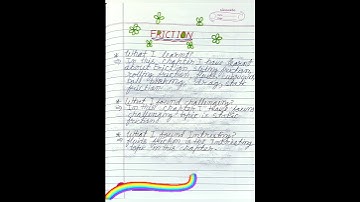 FRICTION
* What I learnt?
⇒ In this chapter I have learnt
about friction, sliding friction,
rolling friction, fluid friction,
ball bearing, drag, static
friction.
* What I found challenging?
⇒ In this chapter I have found
challenging topic is static
friction.
* What I found Intresting?
⇒ fluid friction is the intresting
topic in this chapter.